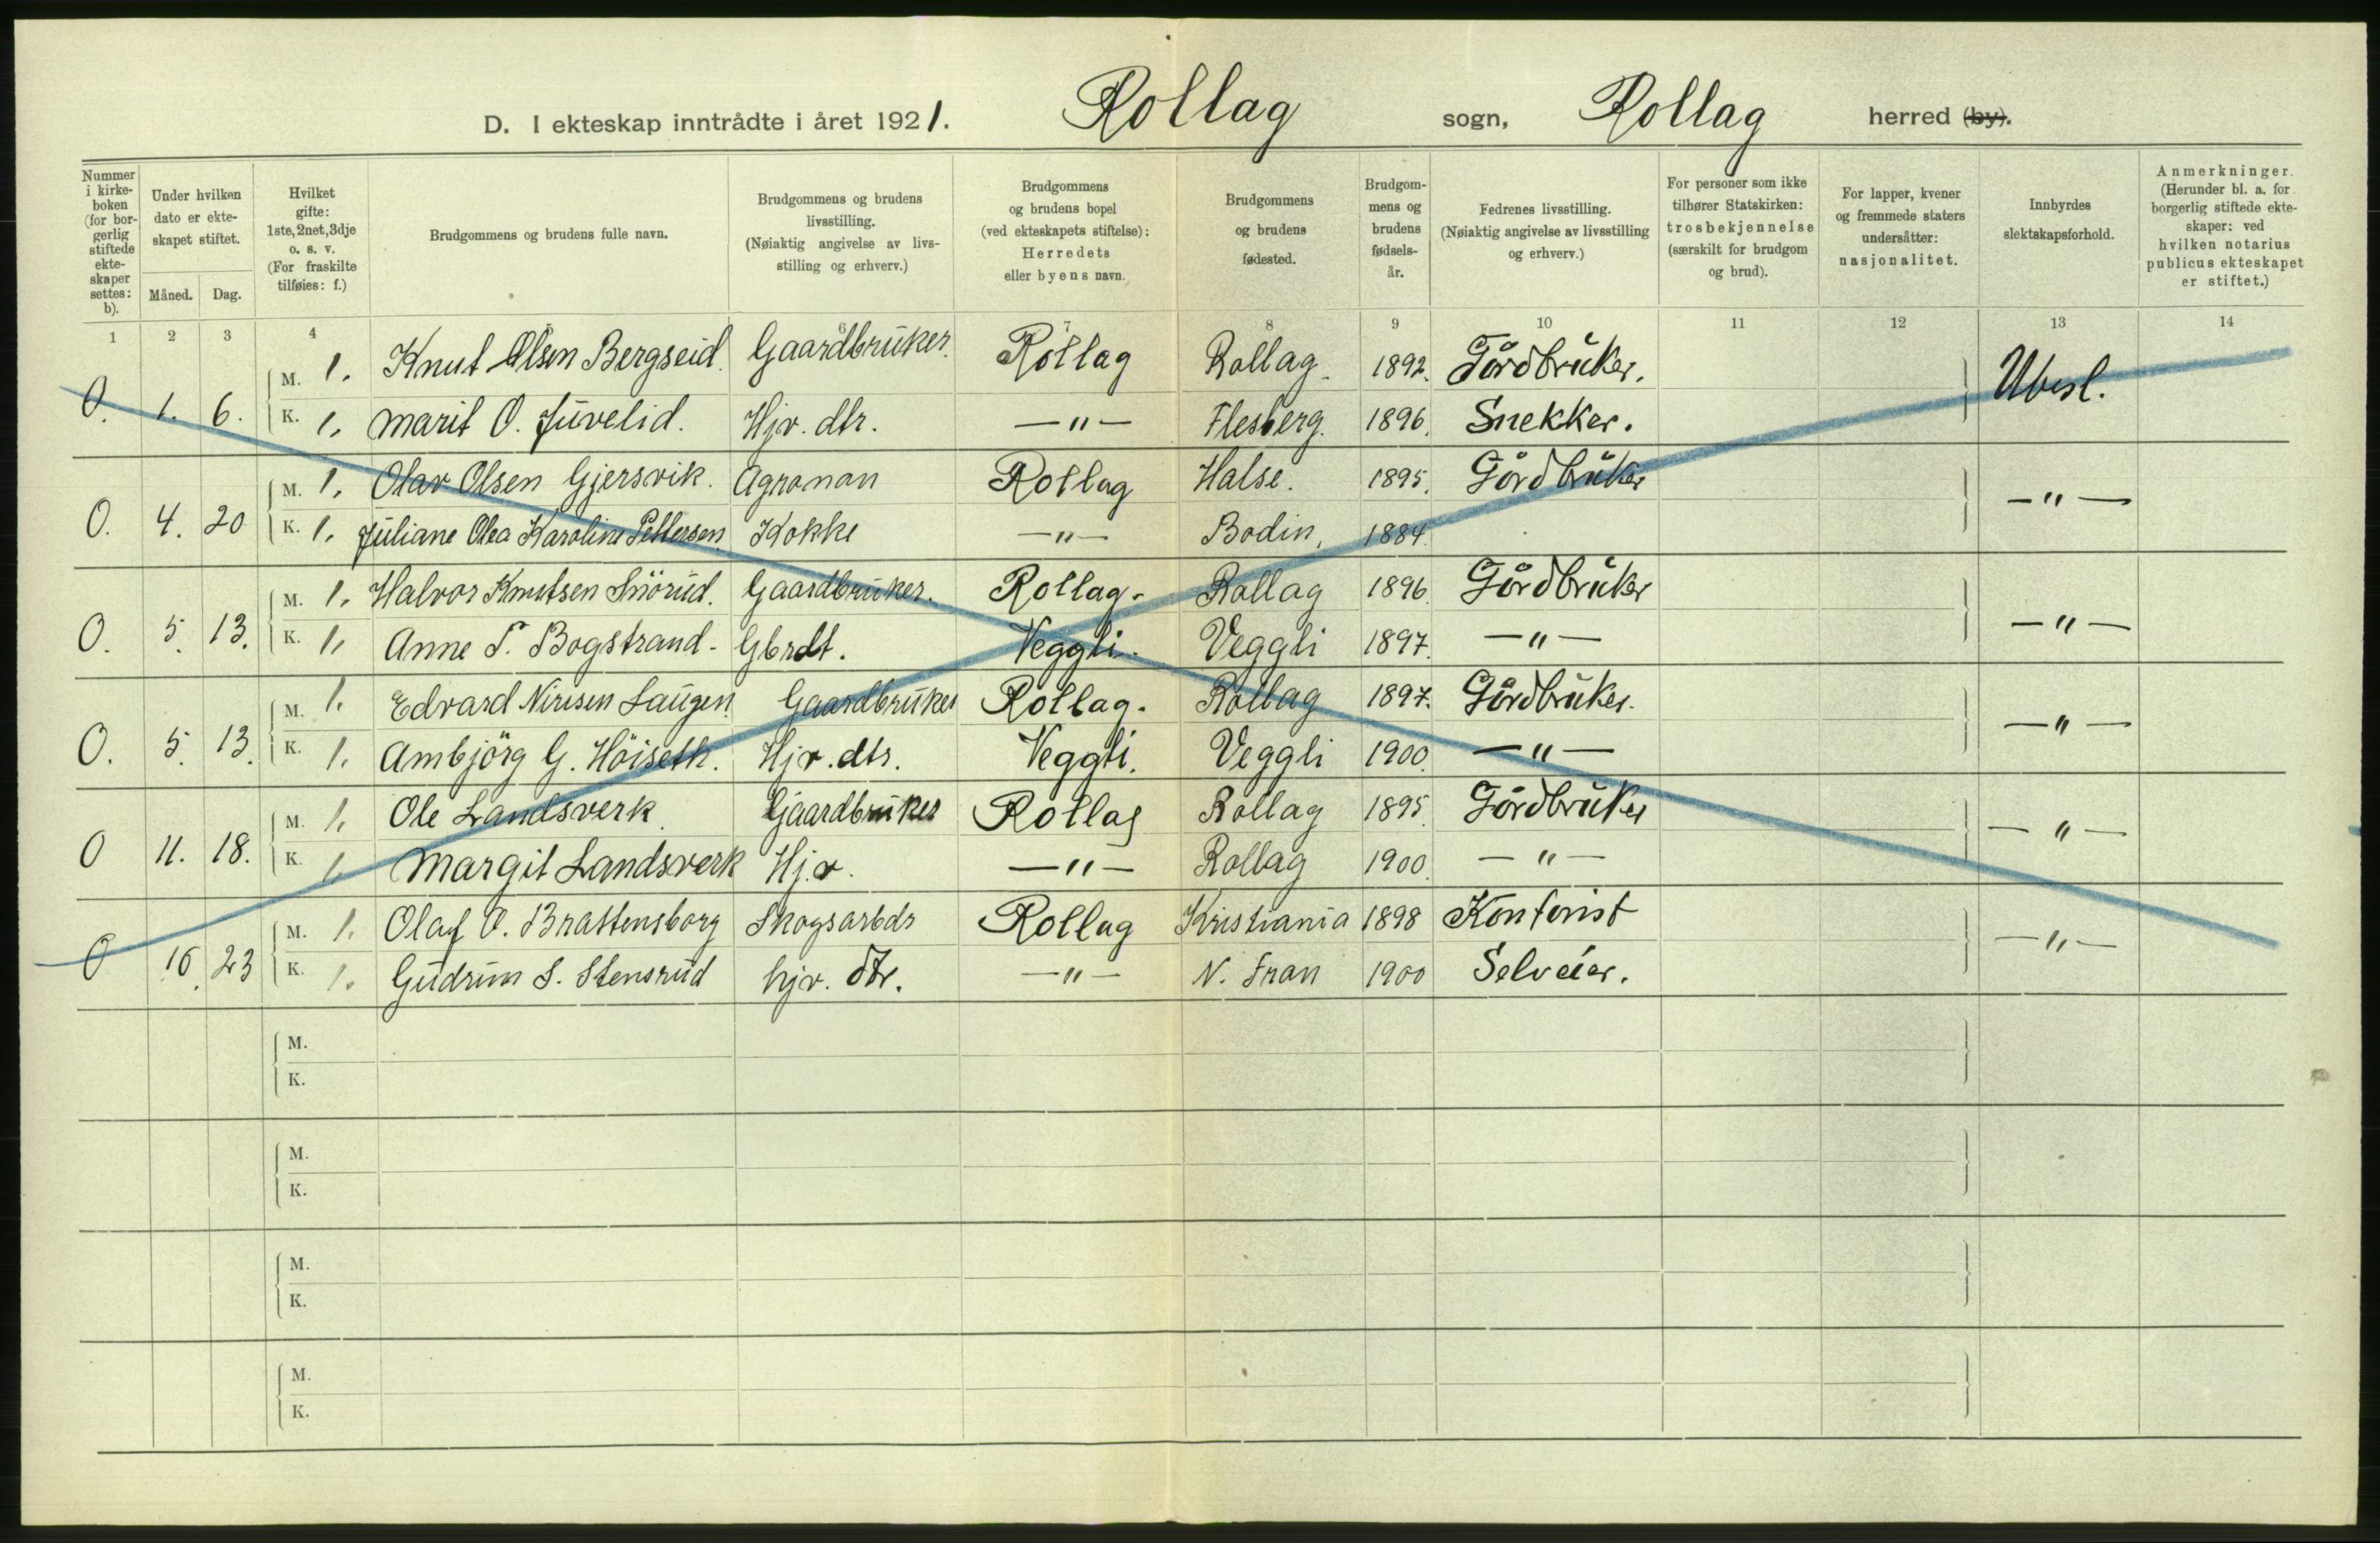 D. I ekteskap inntrådte i året 1921. Rollag sogn, Rollag herred (by).
Nummer i kirkeboken (for borgerlig stiftede ekteskaper settes: b).
Under hvilken dato er ekteskapet stiftet.
Måned. Dag.
Hvilket gifte: 1ste, 2net, 3dje o. s. v. (For fraskilte tilføies: f.)
Brudgommens og brudens fulle navn.
Brudgommens og brudens livsstilling. (Nøiaktig angivelse av livsstilling og erhverv.)
Brudgommens og brudens bopel (ved ekteskapets stiftelse): Herredets eller byens navn.
Brudgommens og brudens fødested.
Brudgommens og brudens fødselsår.
Fedrenes livsstilling. (Nøiaktig angivelse av livsstilling og erhverv.)
For personer som ikke tilhører Statskirken: trosbekjennelse (særskilt for brudgom og brud).
For lapper, kvener og fremmede staters undersåtter: nasjonalitet.
Innbyrdes slektskapsforhold.
Anmerkninger. (Herunder bl. a. for borgerlig stiftede ekteskaper: ved hvilken notarius publicus ekteskapet er stiftet.)
1 2 3 4 5 6 7 8 9 10 11 12 13 14
M. 1. Knut Olsen Bergseid. Gaardbruker. Rollag Rollag. 1892. Gårdbruker. Ubesl.
O. 1. 6. K. 1. Marit O. Juvelid. Hjv. dtr. —"— Flesberg. 1896. Snekker.
M. 1. Olav Olsen Gjersvik. Agronom Rollag Halse. 1895. Gårdbruker —"—
O. 4. 20 K. 1. Juliane Olea Karoline Pettersen Kokke —"— Bodin. 1884.
M. 1. Halvor Knutsen Gaardbruker. Rollag. Rollag 1896. Gårdbruker
O. 5. 13. K. 1. Anne T. Bogstrand. Gbrdt. Veggli. Veggli 1897. —"— —"—
M. 1. Edvard Nirisen Laugen. Gaardbruker Rollag. Rollag 1897. Gårdbruker. —"—
O. 5. 13. K. 1. Ambjörg G. Höiseth. Hjv. dtr. Veggli. Veggli 1900. —"—
M. 1. Ole Landsverk. Gaardbruker Rollag Rollag 1895. Gårdbruker —"—
O 11. 18. K. 1. Margit Landsverk Hj.v. —"— Rollag 1900. —"—
M. 1. Olaf O. Brattensborg Skogsarbdr Rollag Kristiania 1898 Kontorist —"—
O 10. 23 K. 1. Gudrun S. Stensrud hjv. dtr. —"— N. Fron 1900 Selveier.
M.
K.
M.
K.
M.
K.
M.
K.